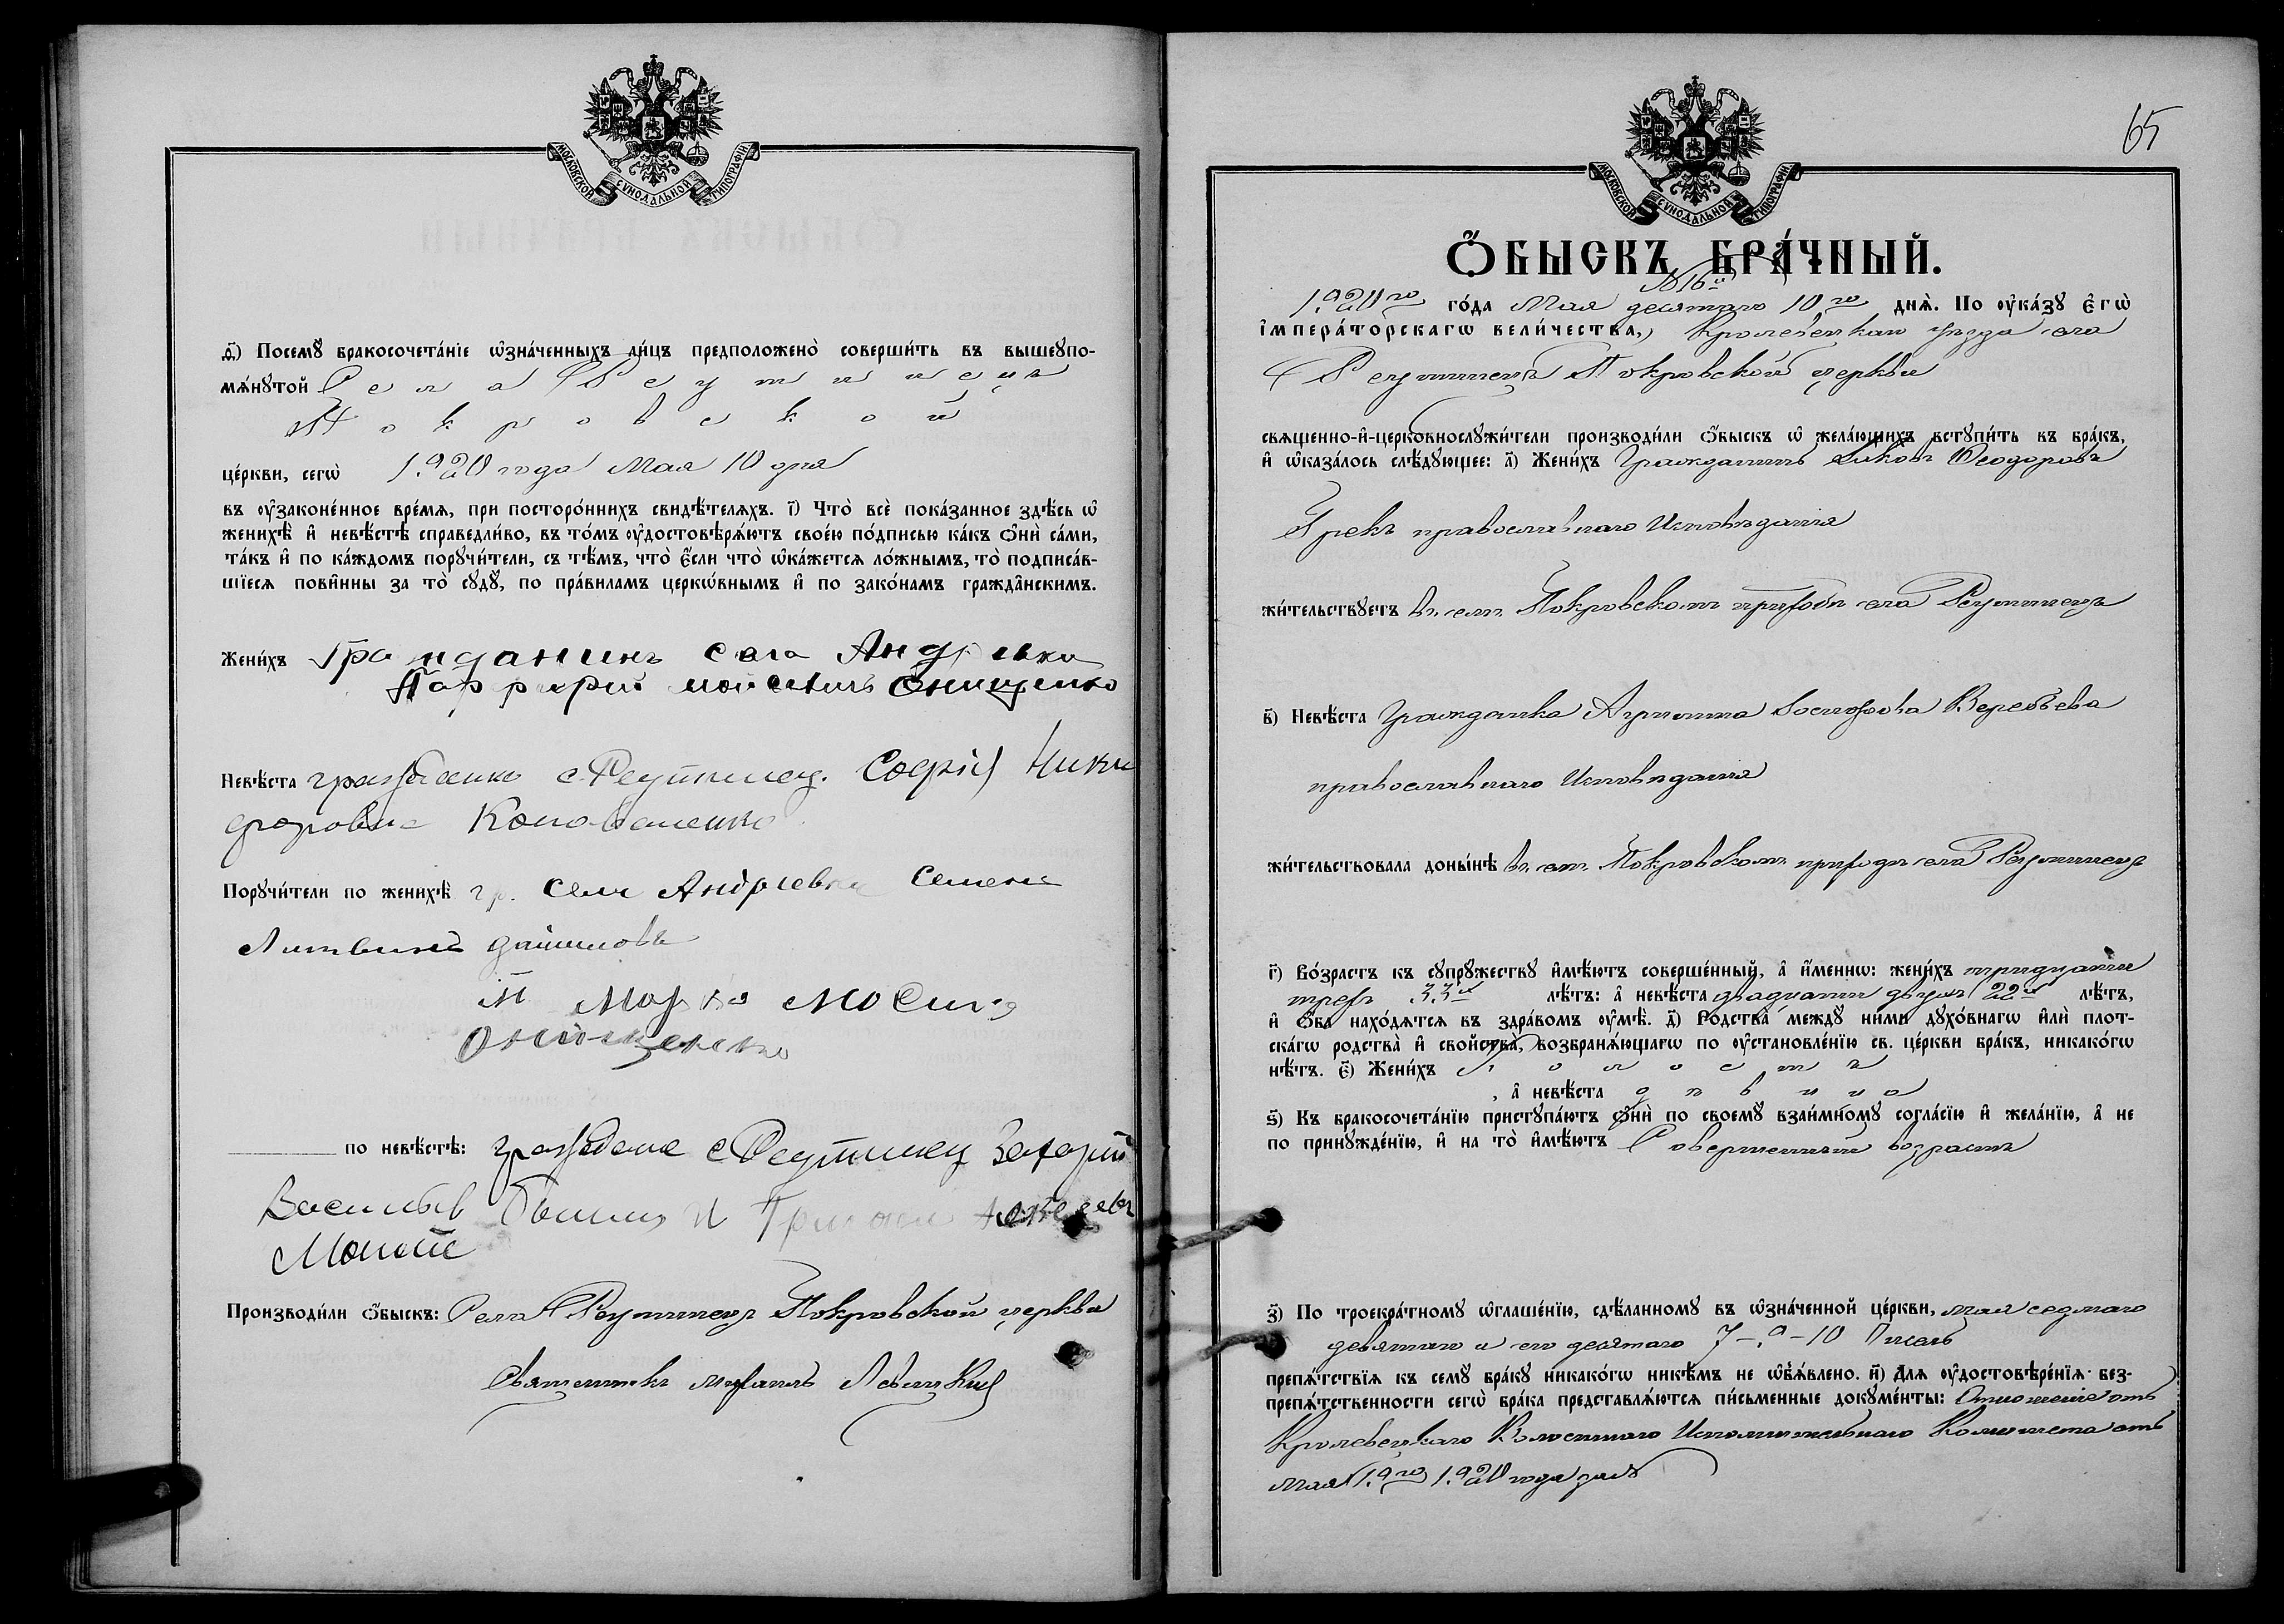 МОСКОВСКОЙ СѴНОДАЛЬНОЙ ТИПОГРАФІИ
д҃) Посемꙋ̀ бракосочета́нїе ѡ҆зна́ченныхъ ли́цъ предположено̀ соверши́ть въ вышеꙋпо-
мѧ́нꙋтой Села Реутинецъ
Покровской
це́ркви, сегѡ̀ 1920 года Мая 10 дня
въ ᲂу҆законе́нное вре́мѧ, при посторо́ннихъ свидѣ́телѧхъ. і҃) Что̀ всѐ пока́занное здѣ́сь ѡ҆
женихѣ̀ и҆ невѣ́стѣ справедли́во, въ то́мъ ᲂу҆достовѣрѧ́ютъ свое́ю по́дписью ка́къ ѻ҆нѝ са́ми,
та́къ и҆ по ка́ждомъ порꙋчи́тели, съ тѣ́мъ, что̀ є҆́сли что̀ ѡ҆ка́жетсѧ ло́жнымъ, то̀ подписа́в-
шїесѧ пови́нны за то̀ сꙋдꙋ̀, по пра́виламъ церкѡ́внымъ и҆ по зако́намъ гражда̂нскимъ.
Жени́хъ Гражданинъ села Андреевки
Порфирій Онищенко
Невѣ́ста гражданка с Реутинец. Софія Ники
форовна Коноваленко
Порꙋчи́тели по женихѣ̀ гр. Села Андреевки Семенъ
Литвинъ
Марко
Онищенко
по невѣ́стѣ: граждане с Реутинец Захарій
Васильев и
Производи́ли ѻ҆́быскъ: Села Реутинецъ Покровской церкви
Священникъ Михаилъ Левицкій
65
МОСКОВСКОЙ СѴНОДАЛЬНОЙ ТИПОГРАФІИ
Ѻ҆́БЫСКЪ БРА́ЧНЫЙ.
№ 16й
1920го го́да Мая десятаго 10го днѧ̀. По ᲂу҆ка́зꙋ є҆гѡ̀
і҆мпера́торскагѡ вели́чества, Кролевецкаго уѣзда села
Реутинецъ Покровской церкви
свѧщенно-и҆-церковнослꙋжи́тели производи́ли ѻ҆́быскъ ѡ҆ жела́ющихъ встꙋпи́ть въ бра́къ,
и҆ ѡ҆каза́лось слѣ́дꙋющее: а҃) Жени́хъ Гражданинъ Ѳеодоровъ
Грекъ православнаго Исповѣданія
жи́тельствꙋетъ въ Покровскомъ приходѣ села Реутинецъ
в҃) Невѣ́ста Гражданка Агрипина Іосифова Веребьева
православнаго Исповѣданія
жи́тельствовала доны́нѣ въ Покровскомъ приходѣ села Реутинецъ
г҃) Во́зрастъ къ сꙋпрꙋ́жествꙋ и҆мѣ́ютъ соверше́нный, а҆ и҆́меннѡ: жени́хъ тридцати
трехъ 33х лѣ́тъ: а҆ невѣ́ста двадцати двухъ 22х лѣ́тъ,
и҆ ѻ҆́ба нахо́дѧтсѧ въ здра́вомъ ᲂу҆мѣ̀. д҃) Родства̀ междꙋ ни́ми дꙋхо́внагѡ и҆лѝ плот-
ска́гѡ родства̀ и҆ свойства̀, возбранѧ́ющагѡ по ᲂу҆становле́нїю св. це́ркви бра́къ, никако́гѡ
нѣ́тъ. є҃) Жени́хъ холостъ
, а҆ невѣ́ста дѣвица
ѕ҃) Къ бракосочета́нїю пристꙋпа́ютъ ѻ҆нѝ по своемꙋ̀ взаи́мномꙋ согла́сїю и҆ жела́нїю, а҆ не
по принꙋжде́нїю, и҆ на то̀ и҆мѣ́ютъ Совершенный возрастъ
з҃) По троекра́тномꙋ ѡ҆глаше́нїю, сдѣ́ланномꙋ въ ѡ҆зна́ченной це́ркви, мая седмаго
девятаго и его десятаго 7-9-10 Чиселъ
препѧ́тствїѧ къ семꙋ̀ бра́кꙋ никако́гѡ никѣ́мъ не ѡ҆б̾ѧ́влено. и҃) Длѧ ᲂу҆достовѣре́нїѧ без-
препѧ́тственности сегѡ̀ бра́ка представлѧ́ютсѧ пи́сьменные докꙋме́нты: Отношеніе отъ
Кролевецкаго Волостнаго Исполнительнаго Комитета отъ
мая 1920 года за №